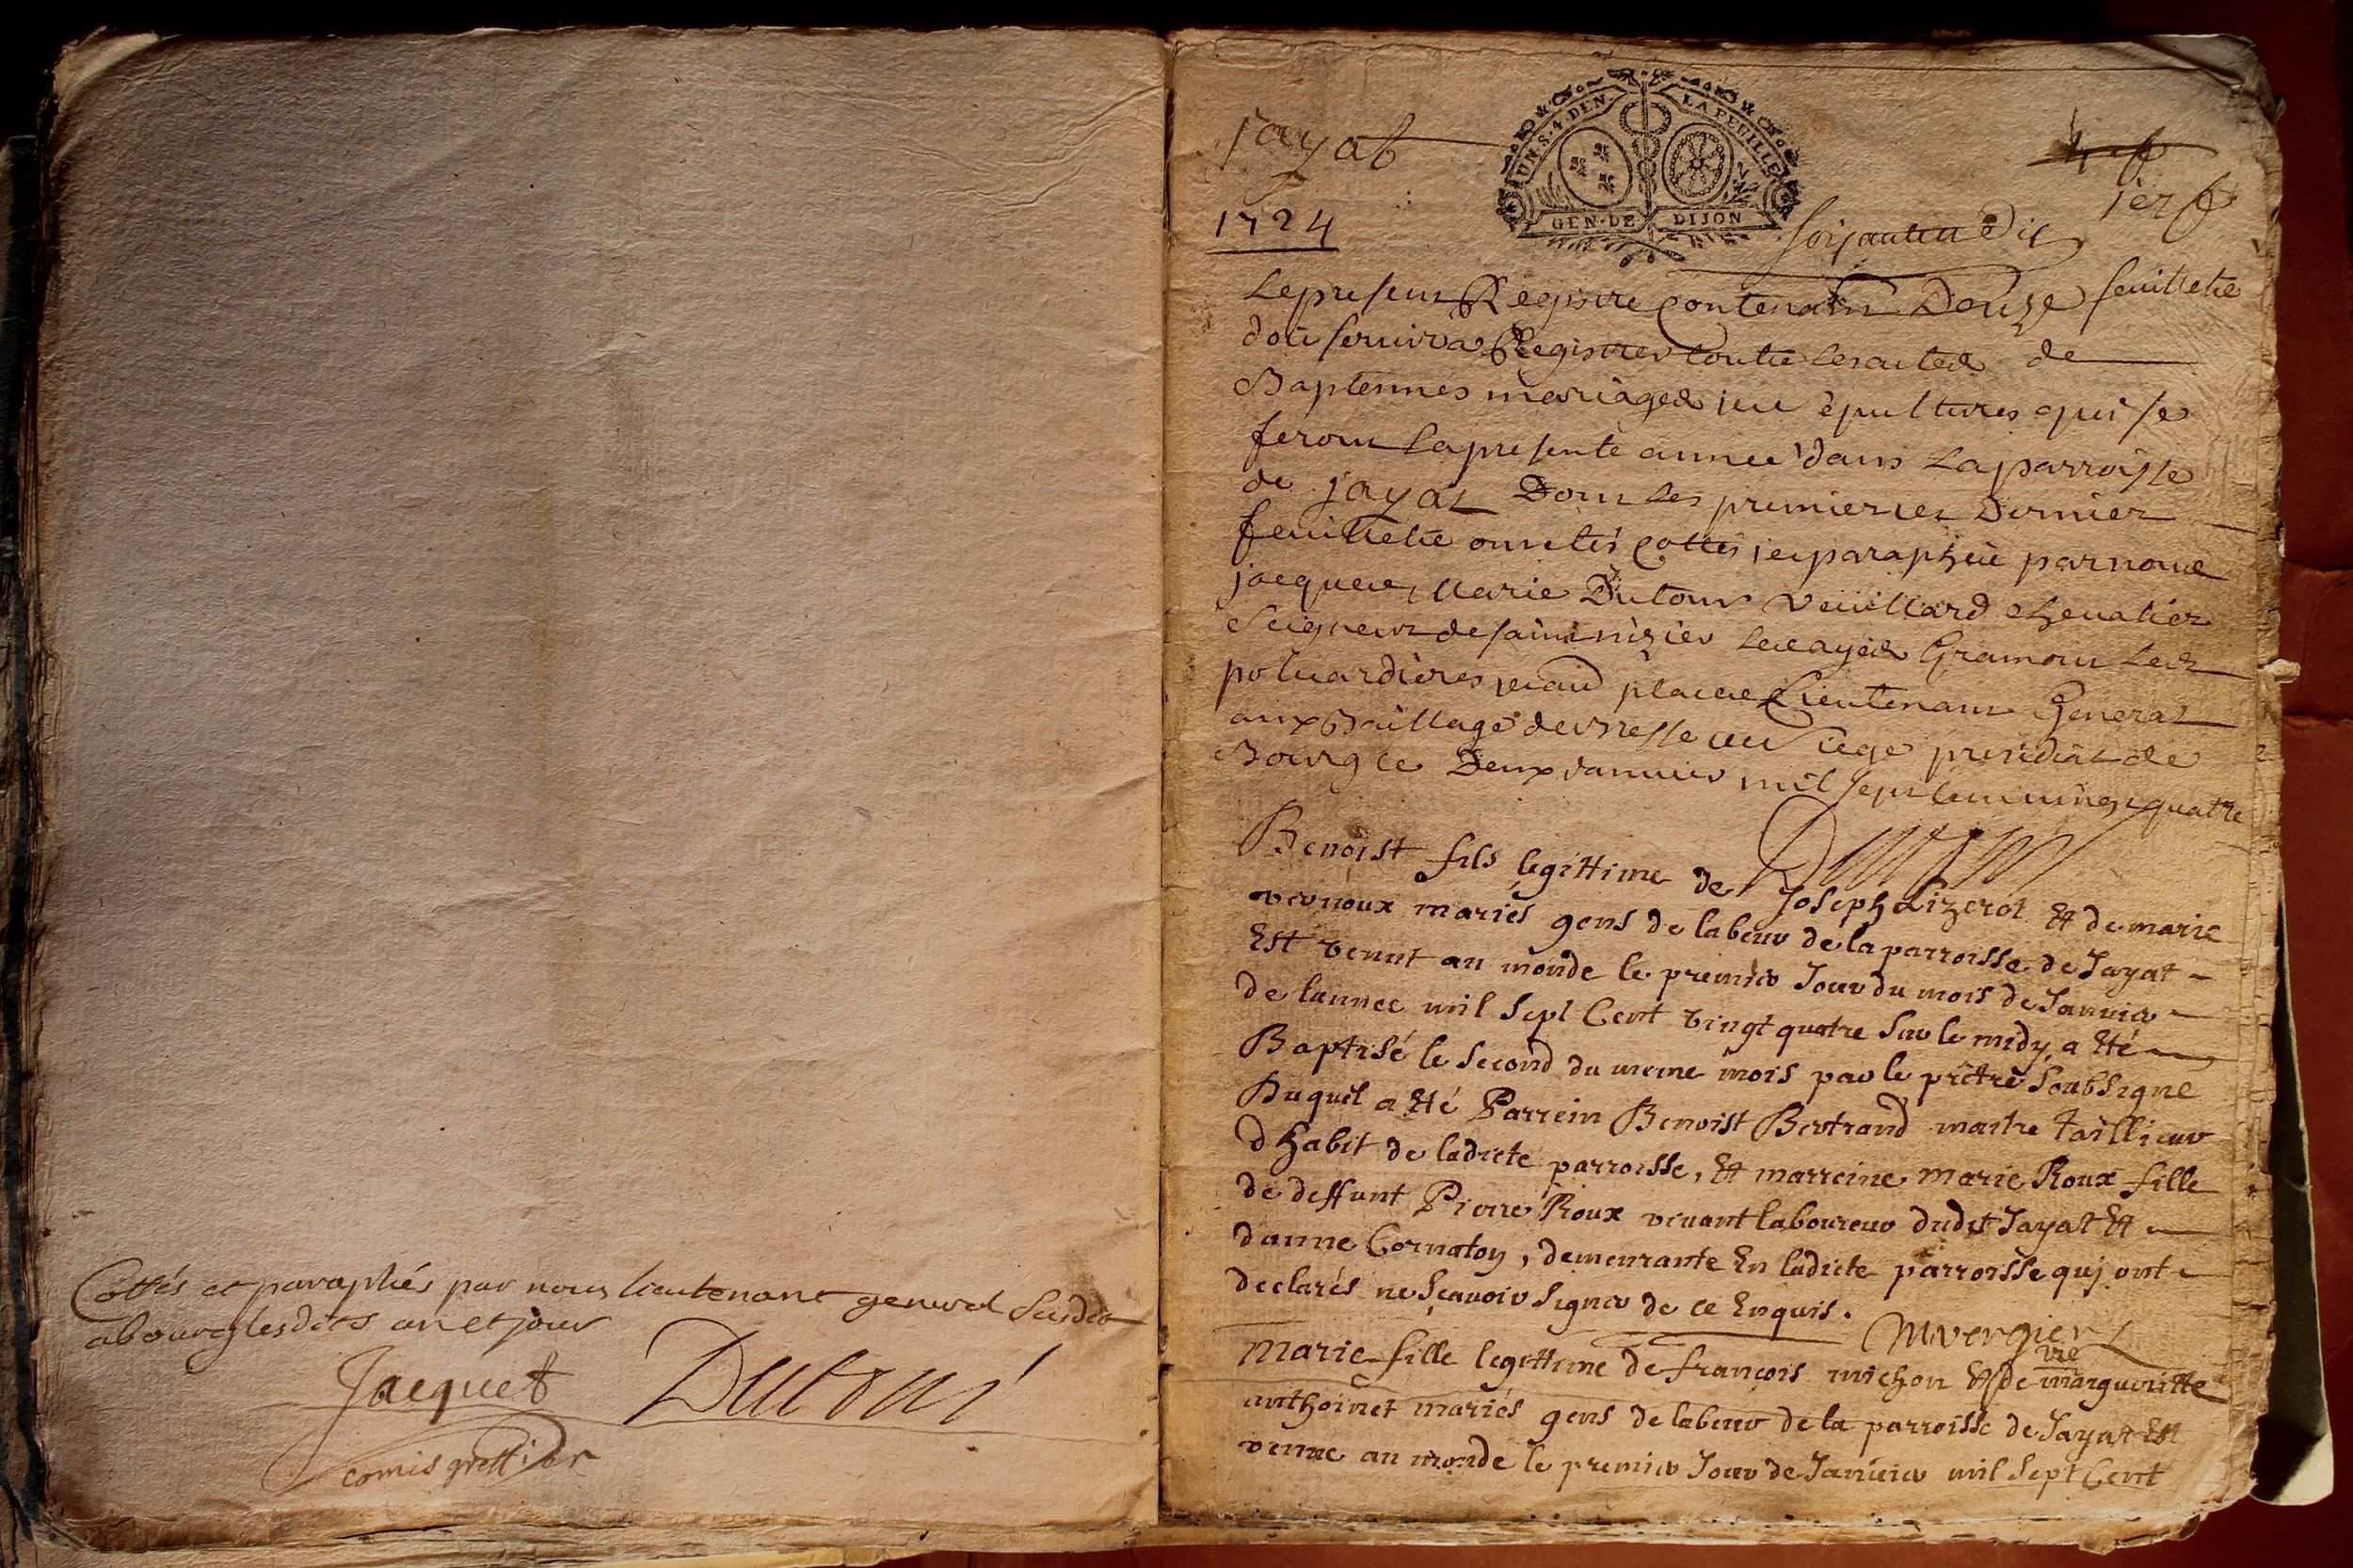 Cottés et paraphés par nous lieutenant general susdit
a bourg lesdits an et jour
Jacquet Dutour
comis greffier
Jayat
UN.S.4.DEN. LA FEUILLE
GEN.DE DIJON
1er f
1724
soixante dix
Le present Registre Contenant Douze feuillets
doit servir a Registrer toutte les actes de
Baptemmes mariages et sepultures qui se
feront la presente annee dans la parroisse
de jayat Dont les premier et Dernier
feuillets ont etés cottés et paraphés par nous
jacques Marie Dutour Veuillard chevalier
Seigneur de saint nizier Gramont Les
et places Lieutenant General
aux Baillage de Bresse et siege presidial de
Bourg ce Deux Janvier mil sept cent vingt quatre
Dutour
Benoist fils legittime de Joseph Lizerot Et de marie
vernoux mariés gens de labeur de la parroisse de Jayat
Est venut au monde le premier Jour du mois de Janvier
de lannee mil Sept Cent vingt quatre Sur le midy, a Eté
Baptisé le Second du meme mois par le prêtre Soubsigne
Duquel a Eté Parrein Benoist Bertrand maitre taillieur
dhabit de ladicte parroisse, Et marreine marie Roux fille
de deffunt Pierre Roux vivant laboureur dudit Jayat Et
danne Cornaton, demeurante En ladicte parroisse quj ont
declarés ne Sçavoir Signer de ce Enquis.
Mvergier
vre
marie fille legittime de francois michon Et de margueritte
anthoinet mariés gens de labeur de la parroisse de Jayat Est
venue au monde le premier Jour de Janvier mil Sept Cent